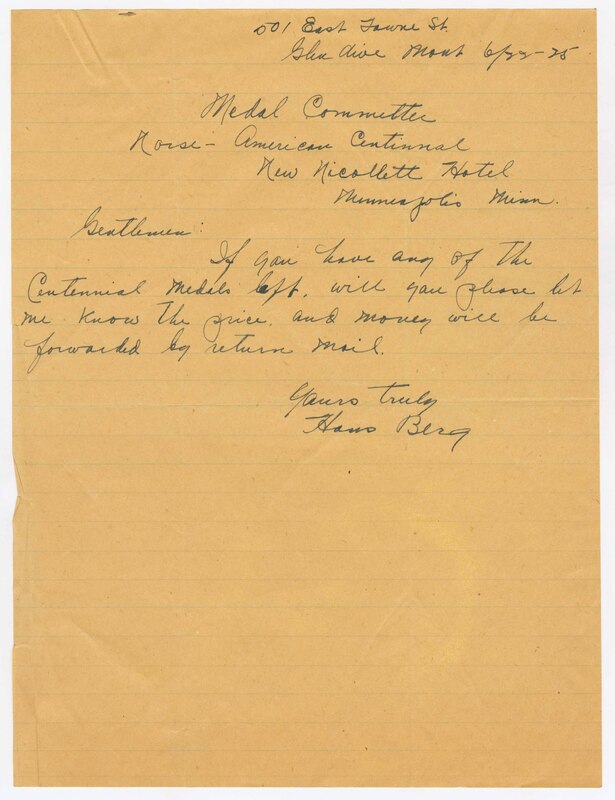 501 East Towne St.
Glendive Mont 6/22-25
Medal Committee
Norse-American Centinnal
New Nicollett Hotel
Minneapolis Minn.
Gentlemen:
If you have any of the
Centennial Medals left, will you please let
me know the price, and money will be
forwarded by return mail.
Yours truly
Hans Berg